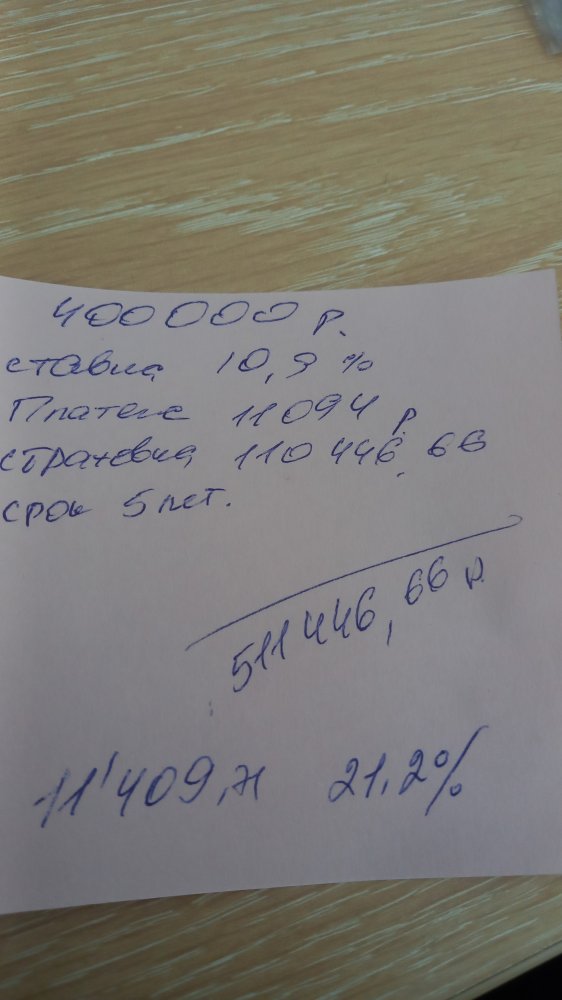 400000 р.
ставка 10,9 %
Платеж 11094 р.
страховка 110 446,66
срок 5 лет.
511 446,66 р.
11'409,71 21,2%